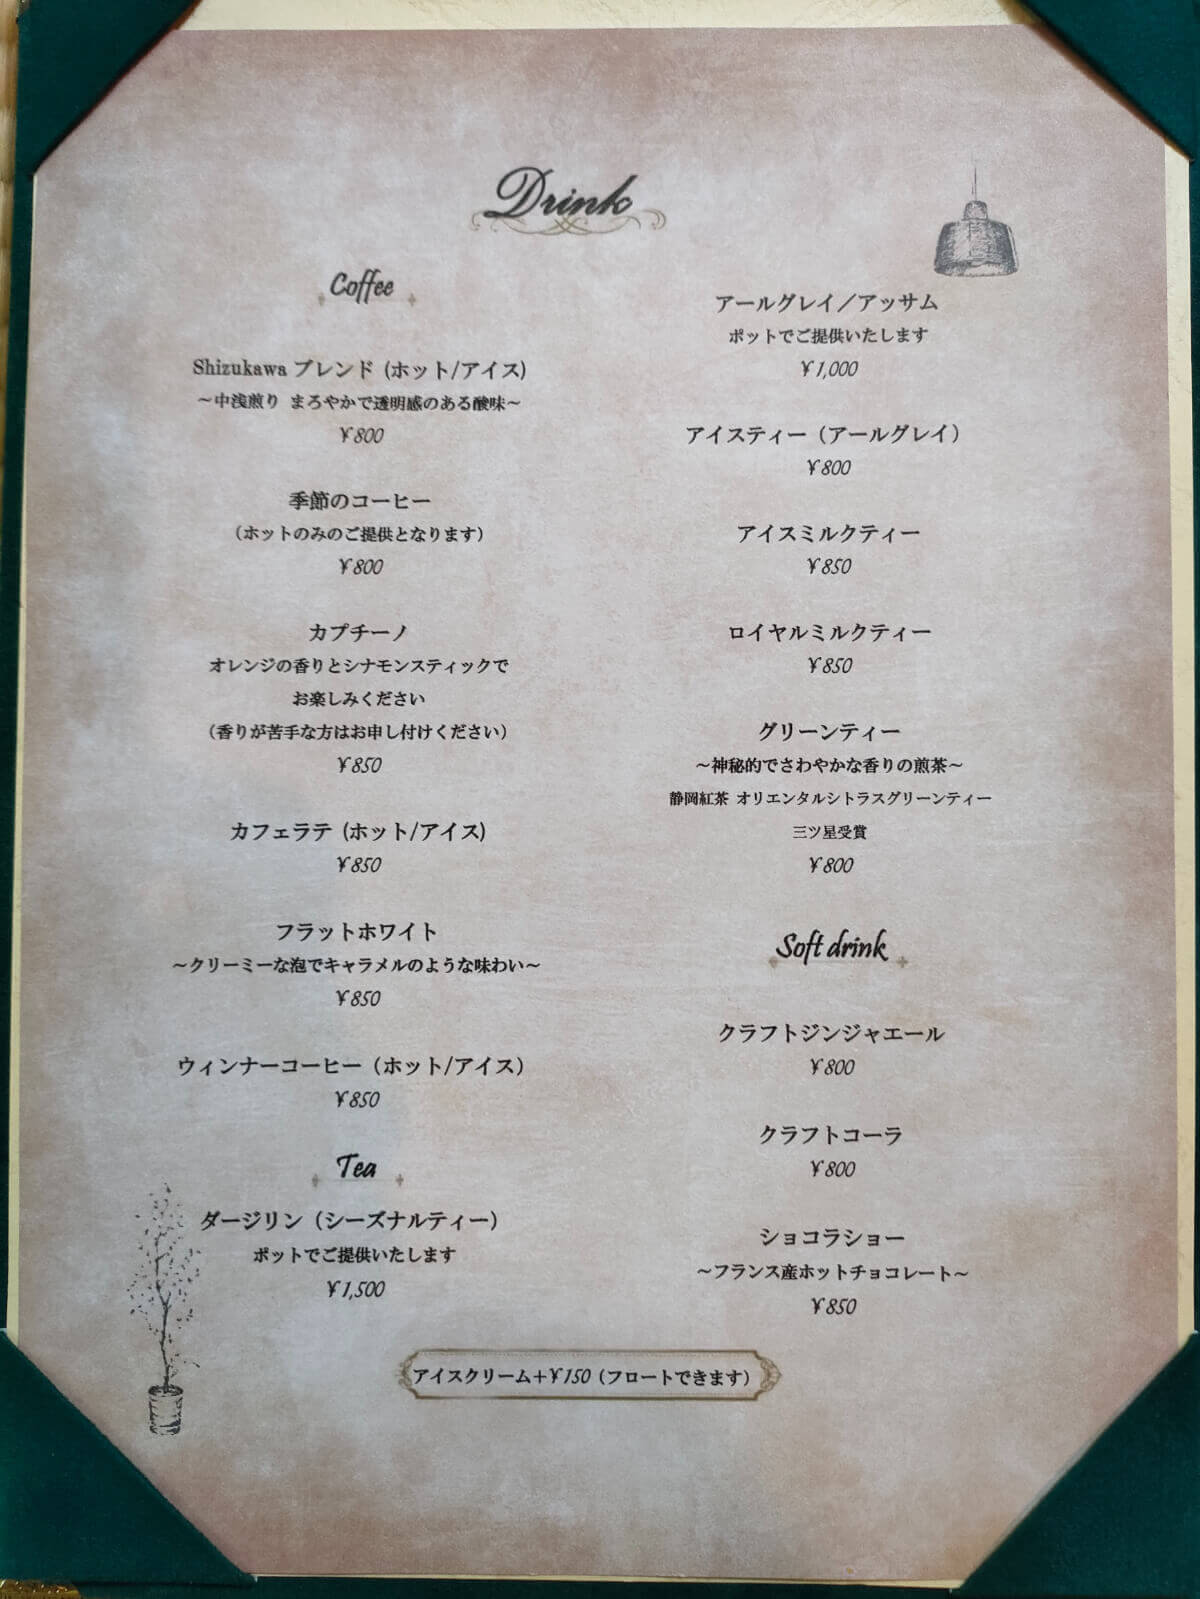 Drink
Coffee
Shizukawa ブレンド (ホット/アイス)
～中浅煎り まろやかで透明感のある酸味～
¥800
季節のコーヒー
（ホットのみのご提供となります）
¥800
カプチーノ
オレンジの香りとシナモンスティックで
お楽しみください
（香りが苦手な方はお申し付けください）
¥850
カフェラテ (ホット/アイス)
¥850
フラットホワイト
～クリーミーな泡でキャラメルのような味わい～
¥850
ウィンナーコーヒー（ホット/アイス）
¥850
Tea
ダージリン（シーズナルティー）
ポットでご提供いたします
¥1,500
アールグレイ／アッサム
ポットでご提供いたします
¥1,000
アイスティー（アールグレイ）
¥800
アイスミルクティー
¥850
ロイヤルミルクティー
¥850
グリーンティー
～神秘的でさわやかな香りの煎茶～
静岡紅茶 オリエンタルシトラスグリーンティー
三ツ星受賞
¥800
Soft drink
クラフトジンジャエール
¥800
クラフトコーラ
¥800
ショコラショー
～フランス産ホットチョコレート～
¥850
アイスクリーム+¥150（フロートできます）